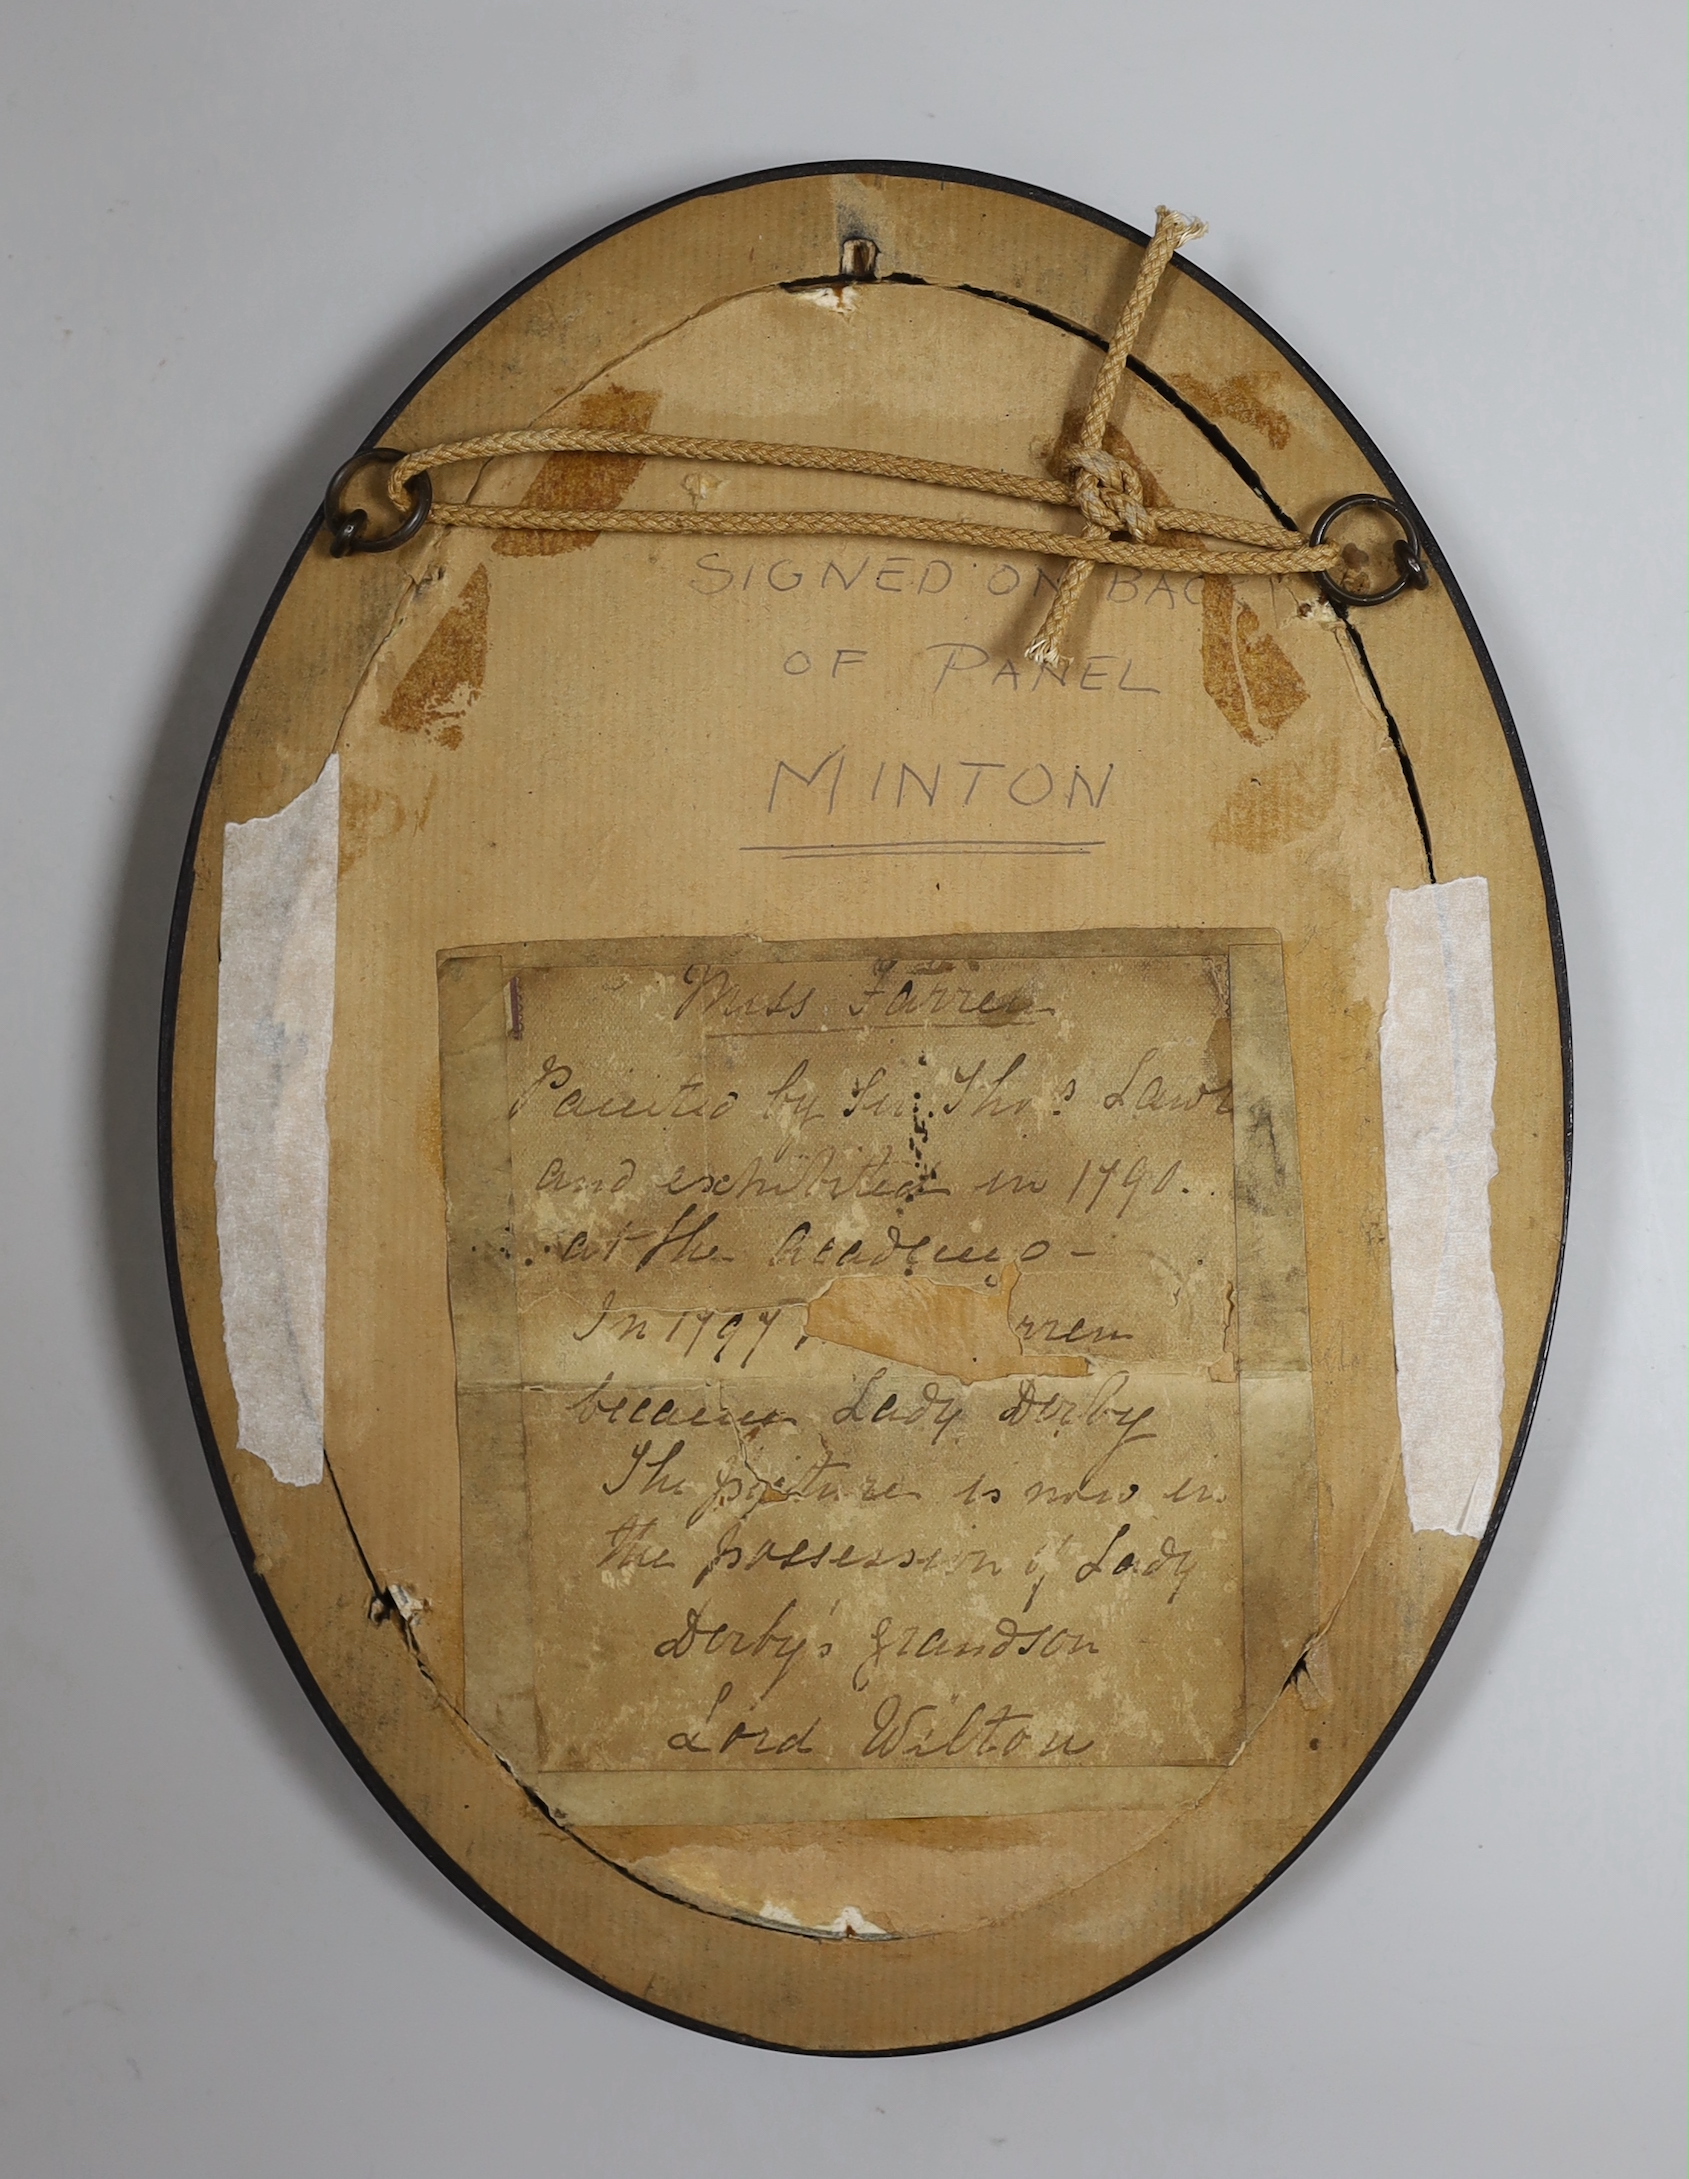 SIGNED ON BAC
OF PANEL
MINTON
Miss Farren
Painted by Sir Thos Lawr
and exhibited in 1790.
at the Academy -
In 1797 rren
became Lady Derby
The picture is now in
the possession of Lady
Derby's grandson
Lord Wilton